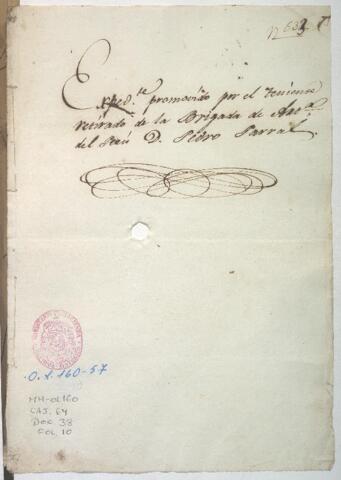 Exped.te promovido por el Teniente
retirado de la Brigada de Art.a
del Perú D. Pedro Parral.
O.L.160-57
MH-OL160
CAJ. 64
DOC. 38
FOL. 10